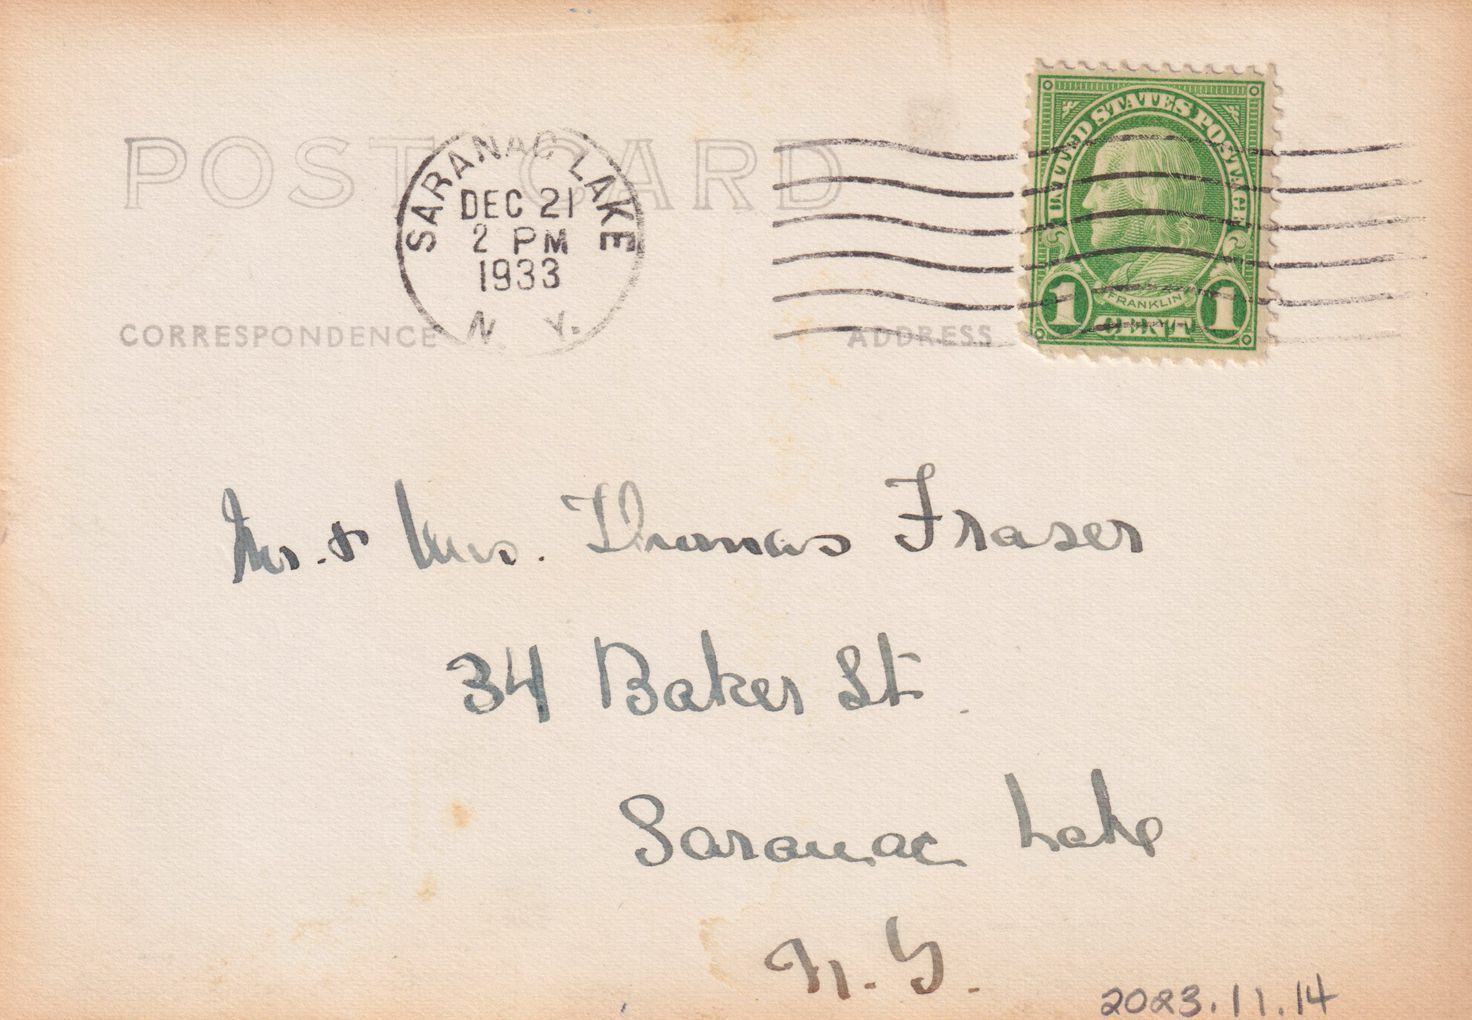 POST CARD
SARANAC LAKE
DEC 21
2 PM
1933
N. Y.
UNITED STATES POSTAGE
FRANKLIN
1 CENT 1
CORRESPONDENCE
ADDRESS
Mr. & Mrs. Thomas Fraser
34 Baker St.
Saranac Lake
N. Y.
2023.11.14